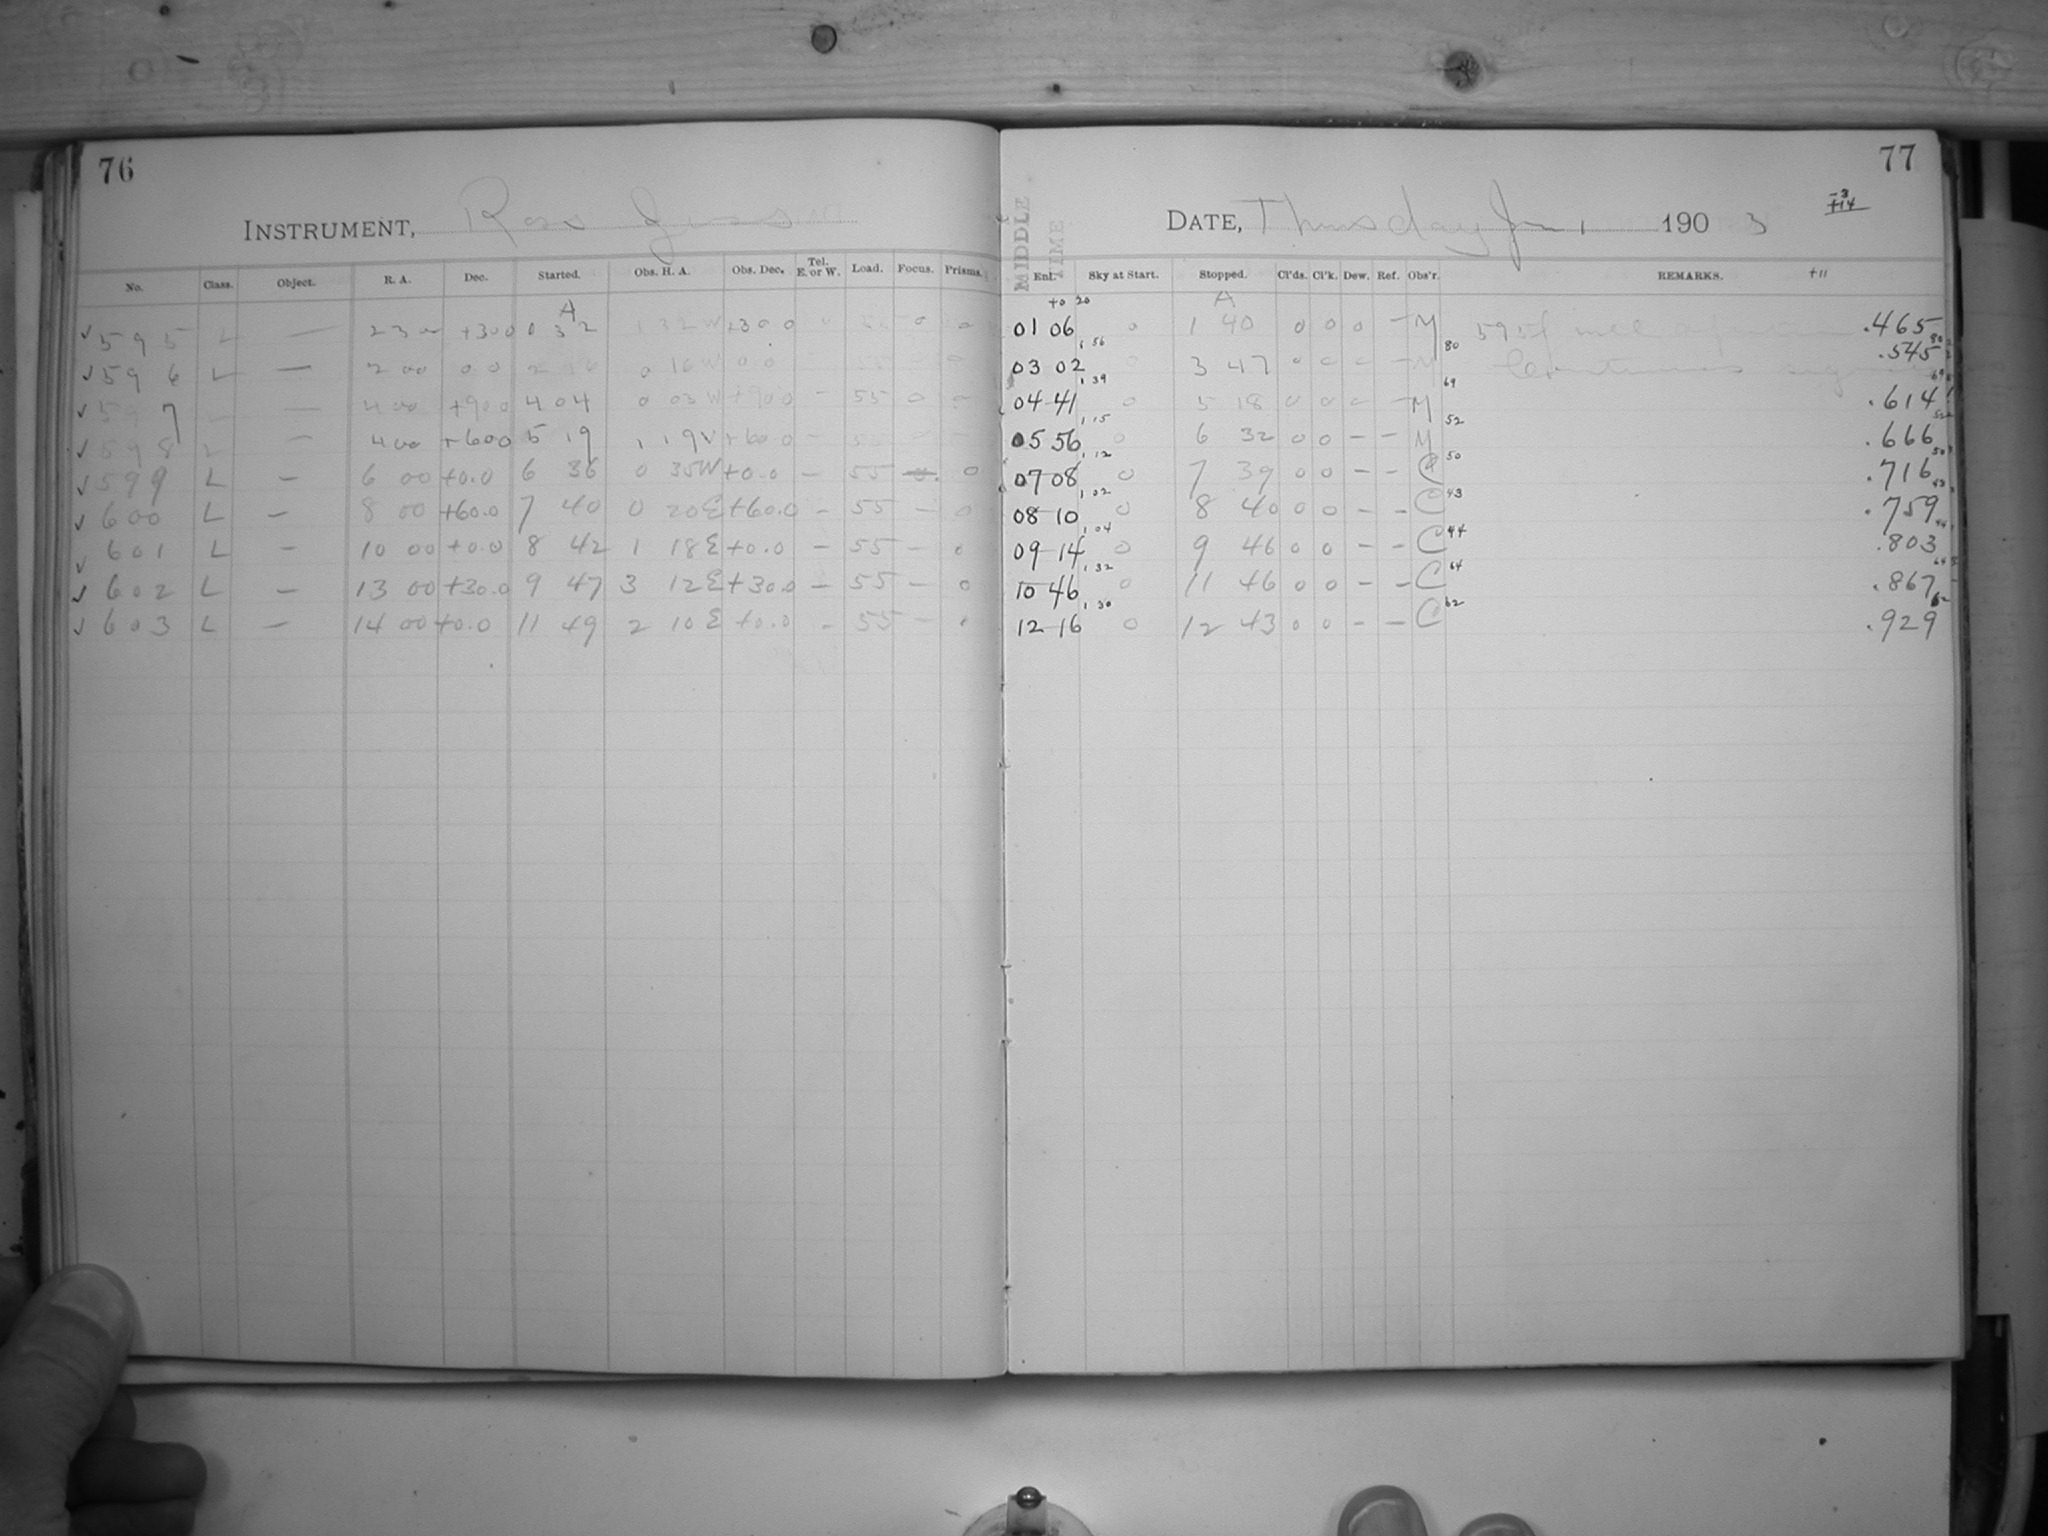 76
INSTRUMENT, Ross
No. Class. Object. R. A. Dec. Started. Obs. H. A. Obs. Dec. Tel. E. or W. Load. Focus. Prisms.
A
✓ 595 L — 23 00 +30.0 0 32 1 32 W +30.0 0 0
✓ 596 L — 2 00 0.0 0 16 W 0.0
✓ 597 4 00 +90.0 4 04 0 03 W +90.0 — 55 0 —
✓ 598 L — 4 00 +60.0 5 19 1 19 +60.0 —
✓ 599 L — 6 00 +0.0 6 36 0 35 W +0.0 — 55 0
✓ 600 L — 8 00 +60.0 7 40 0 20 E +60.0 — 55 — 0
✓ 601 L — 10 00 +0.0 8 42 1 18 E +0.0 — 55 — 0
✓ 602 L — 13 00 +30.0 9 47 3 12 E +30.0 — 55 — 0
✓ 603 L — 14 00 +0.0 11 49 2 10 E +0.0 — 55 — 0
77
-3
+14
MIDDLE TIME
DATE, Thursday Jan 1 1903
Ent. Sky at Start. Stopped. Cl'ds. Cl'k. Dew. Ref. Obs'r. REMARKS. +11
+0 20 A
01 06 0 1 40 0 0 0 — M 595 .465
1 56 80 80
03 02 0 3 47 0 0 0 — M Continuous .545
1 39 69 69
04 41 0 5 18 0 0 0 — M .614
1 15 52 52
05 56 0 6 32 0 0 — — M .666
1 12 50 50
07 08 0 7 39 0 0 — — C .716
1 02 43 43
08 10 0 8 40 0 0 — — C .759
1 04 44 44
09 14 0 9 46 0 0 — — C .803
1 32 64 64
10 46 0 11 46 0 0 — — C .867
1 30 62 62
12 16 0 12 43 0 0 — — C .929